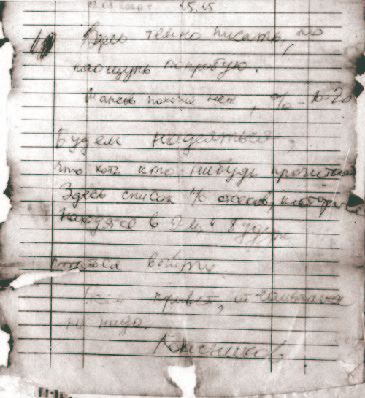 Здесь темно писать, но
наощупь попробую.
Шансов похоже нет, % 10-20
Будем надеяться,
что хоть кто нибудь прочитает
Здесь список л/с отсеков, которые
находятся в 9-м и будут
выйти.
Всем привет, отчаиваться
не надо.
Колесников.